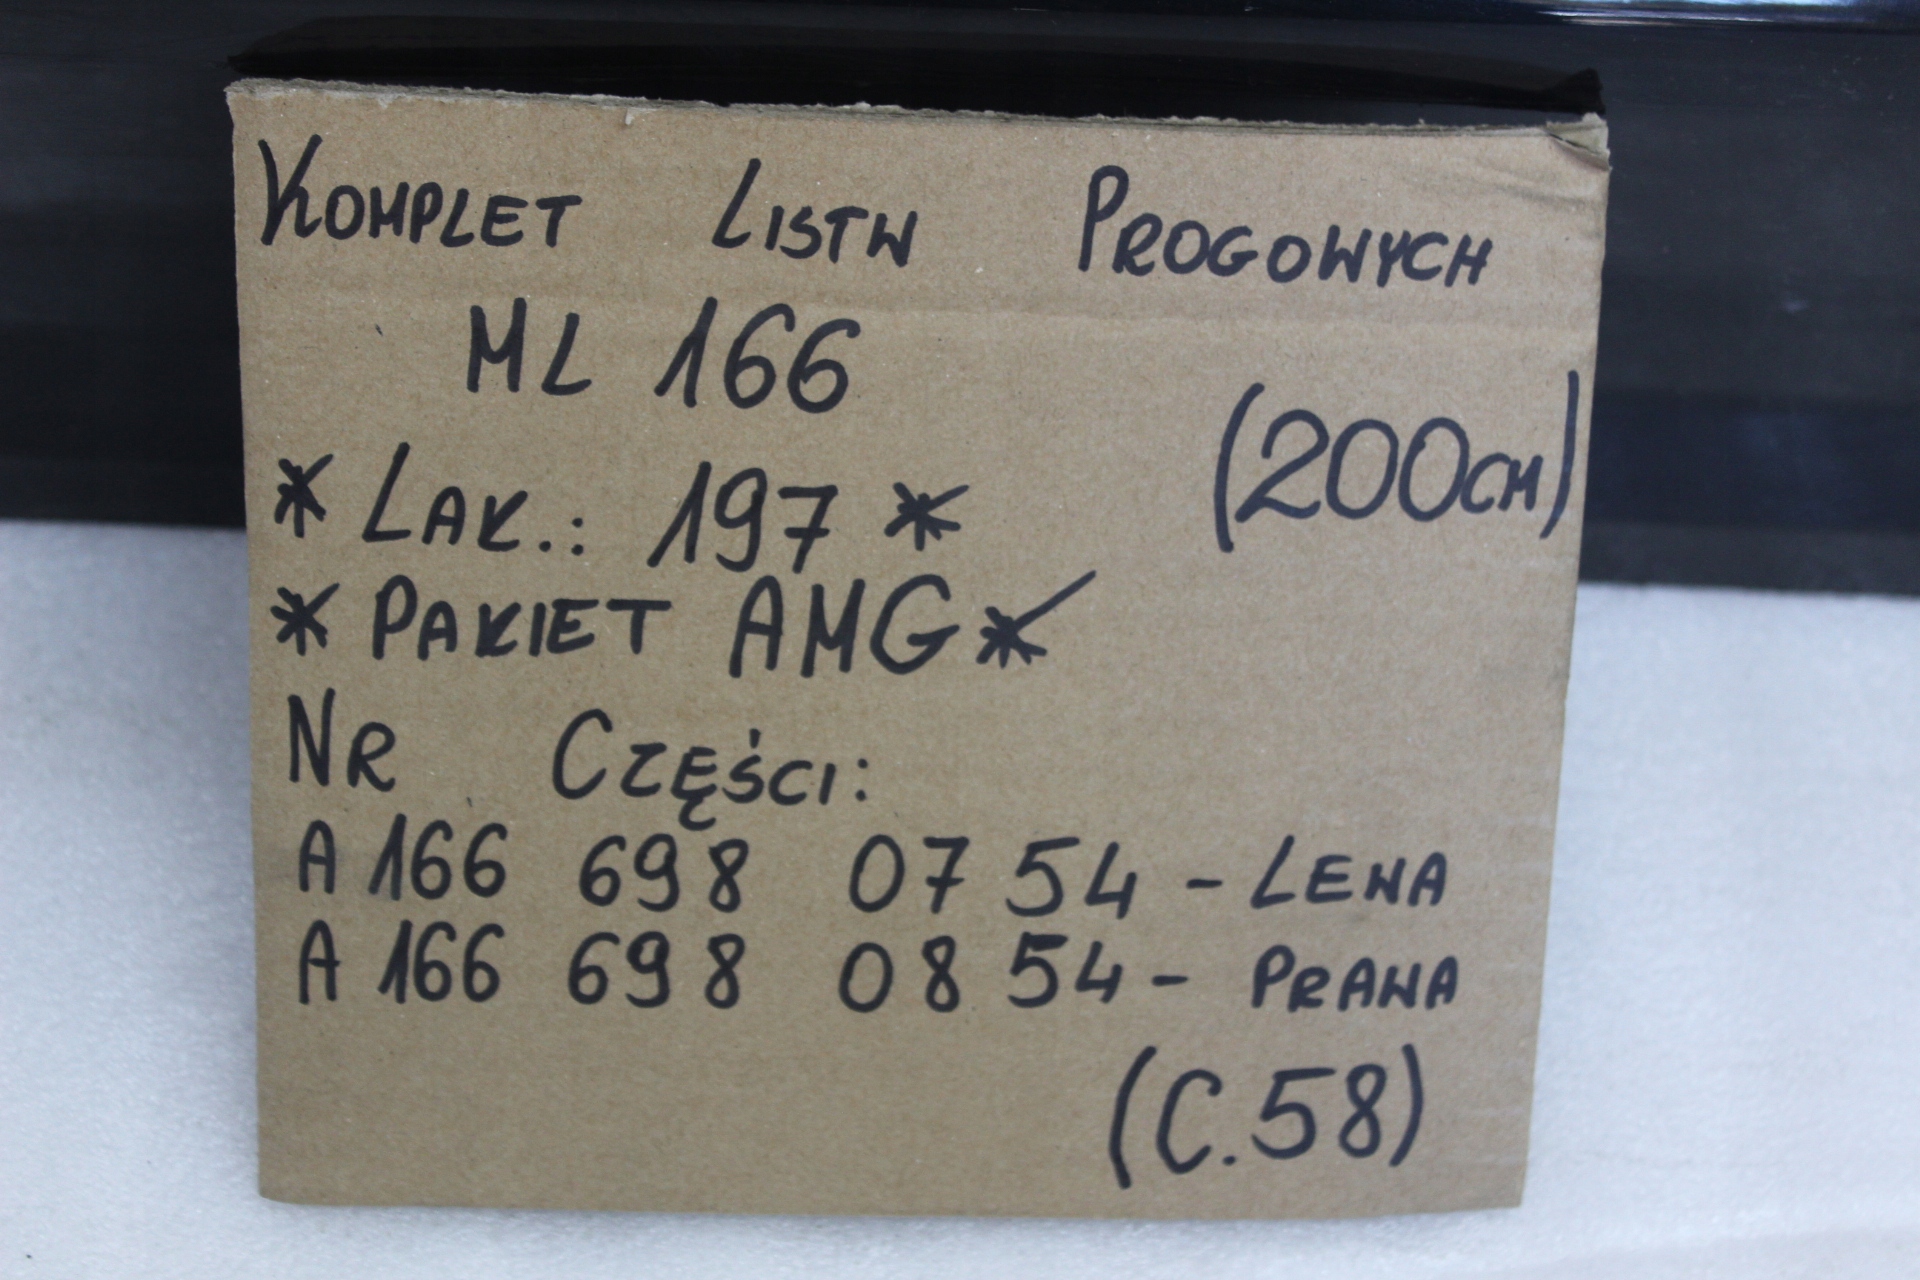 Komplet Listw Progowych
ML 166
(200cm)
* Lak.: 197 *
* Pakiet AMG *
Nr Części:
A 166 698 07 54 - Lewa
A 166 698 08 54 - Prawa
(C.58)